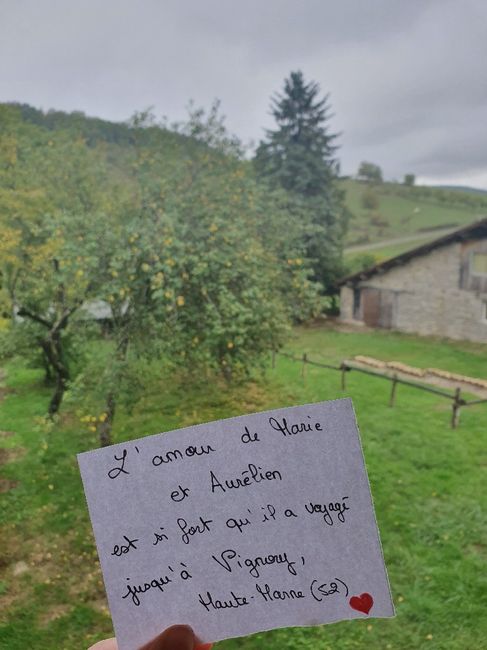 L'amour de Marie
et Aurélien
est si fort qu'il a voyagé
jusqu'à Vignory,
Haute-Marne (52)